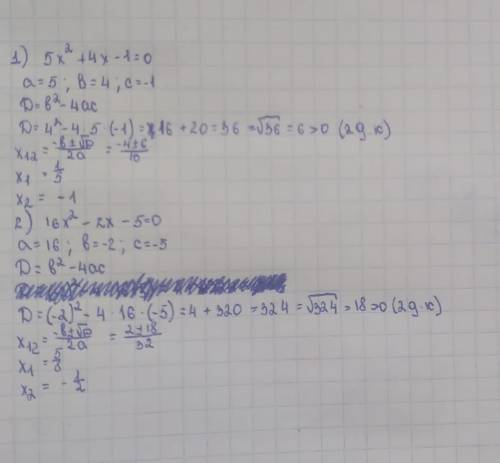 1) 5x² + 4x - 1 = 0
a = 5; в = 4; c = -1
D = в² - 4ac
D = 4² - 4 · 5 · (-1) = 16 + 20 = 36 = √36 = 6 > 0 (2 д. к)
x₁₂ = (-в ± √D)/2a = (-4 ± 6)/10
x₁ = 1/5
x₂ = -1
2) 16x² - 2x - 5 = 0
a = 16; в = -2; c = -5
D = в² - 4ac
D = (-2)² - 4 · 16 · (-5) = 4 + 320 = 324 = √324 = 18 > 0 (2 д. к)
x₁₂ = (-в ± √D)/2a = (2 ± 18)/32
x₁ = 5/8
x₂ = -1/2